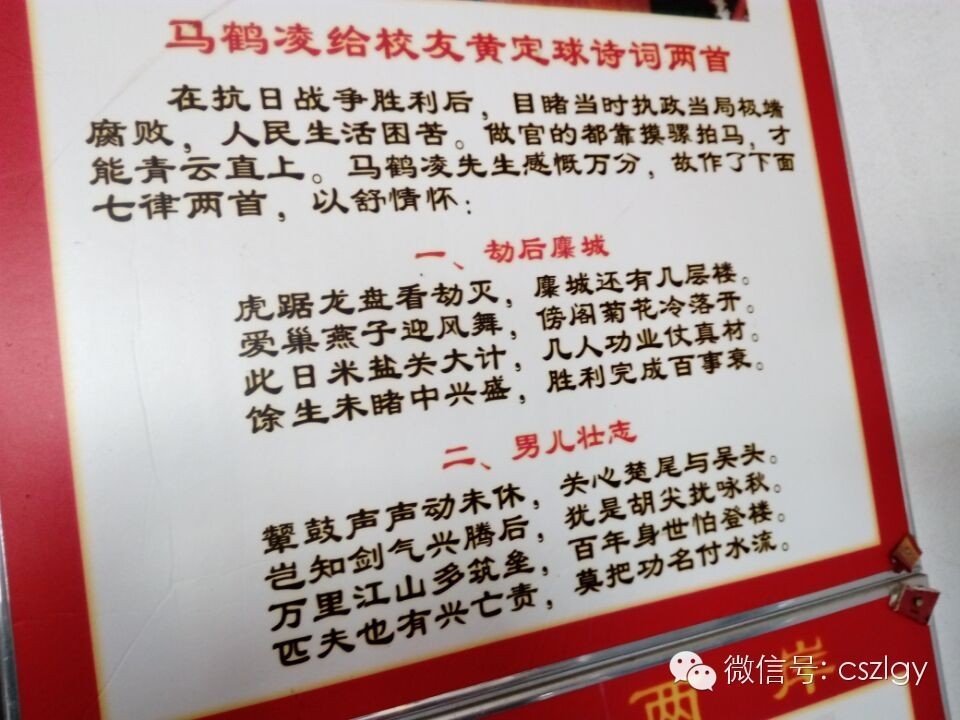 马鹤凌给校友黄定球诗词两首
在抗日战争胜利后，目睹当时执政当局极端
腐败，人民生活困苦。做官的都靠摸骡拍马，才
能青云直上。马鹤凌先生感慨万分，故作了下面
七律两首，以舒情怀：
一、劫后麋城
虎踞龙盘看劫灭，麋城还有几层楼。
爱巢燕子迎风舞，傍阁菊花冷落开。
此日米盐关大计，几人功业仗真材。
馀生未睹中兴盛，胜利完成百事衰。
二、男儿壮志
鼙鼓声声动未休，关心楚尾与吴头。
岂知剑气兴腾后，犹是胡尖扰咏秋。
万里江山多筑垒，百年身世怕登楼。
匹夫也有兴亡责，莫把功名付水流。
微信号: cszlgy
两岸